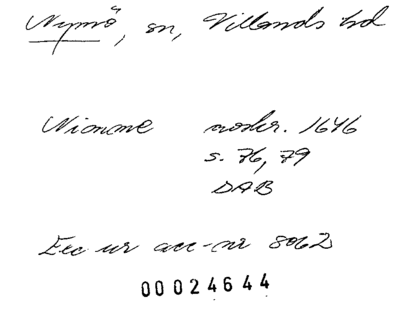 Nymö, sn, Villands hd
Niomme nodher. 1646
s. 76, 79
DAB
Exc ur acc-nr 8062
00024644